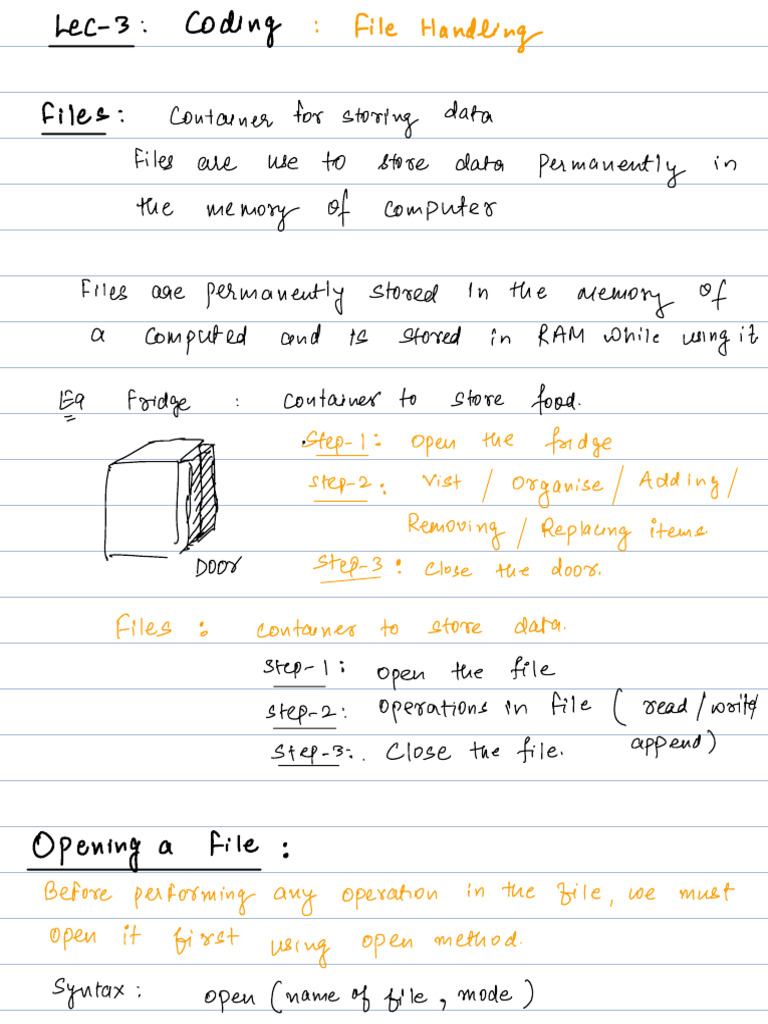 Lec-3: Coding : File Handling
Files: Container for storing data
Files are use to store data permanently in
the memory of computer
Files are permanently stored in the memory of
a computed and is stored in RAM while using it
Eg Fridge : Container to store food.
Step-1: Open the fridge
Step-2: Vist / Organise / Adding /
Removing / Replacing items.
DOOR Step-3: Close the door.
Files : Container to store data.
Step-1: Open the file
Step-2: Operations in file ( read/write/
Step-3:. Close the file. append)
Opening a File :
Before performing any operation in the file, we must
open it first using open method.
Syntax: open (name of file, mode)